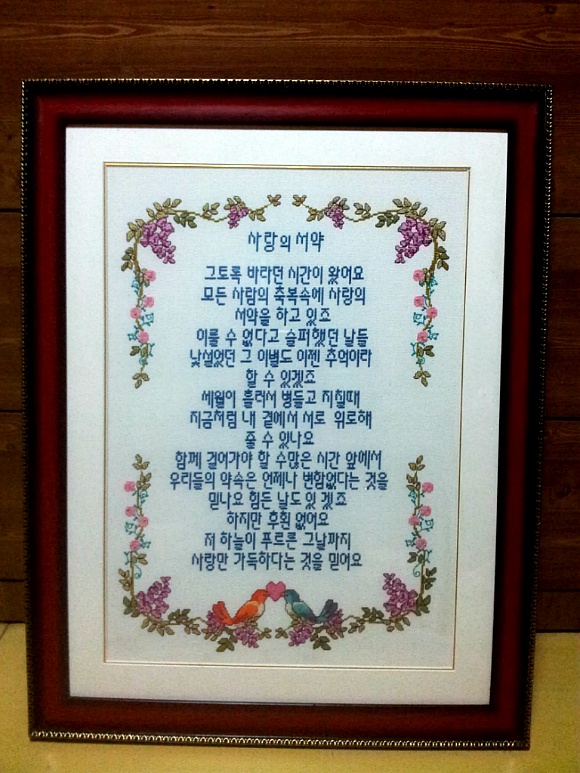 사랑의 서약
그토록 바라던 시간이 왔어요
모든 사람의 축복속에 사랑의
서약을 하고 있죠
이룰 수 없다고 슬퍼했던 날들
낯설었던 그 이별도 이젠 추억이라
할 수 있겠죠
세월이 흘러서 병들고 지칠때
지금처럼 내 곁에서 서로 위로해
줄 수 있나요
함께 걸어가야 할 수많은 시간 앞에서
우리들의 약속은 언제나 변함없다는 것을
믿나요 힘든 날도 있겠죠
하지만 후회 없어요
저 하늘이 푸르른 그날까지
사랑만 가득하다는 것을 믿어요